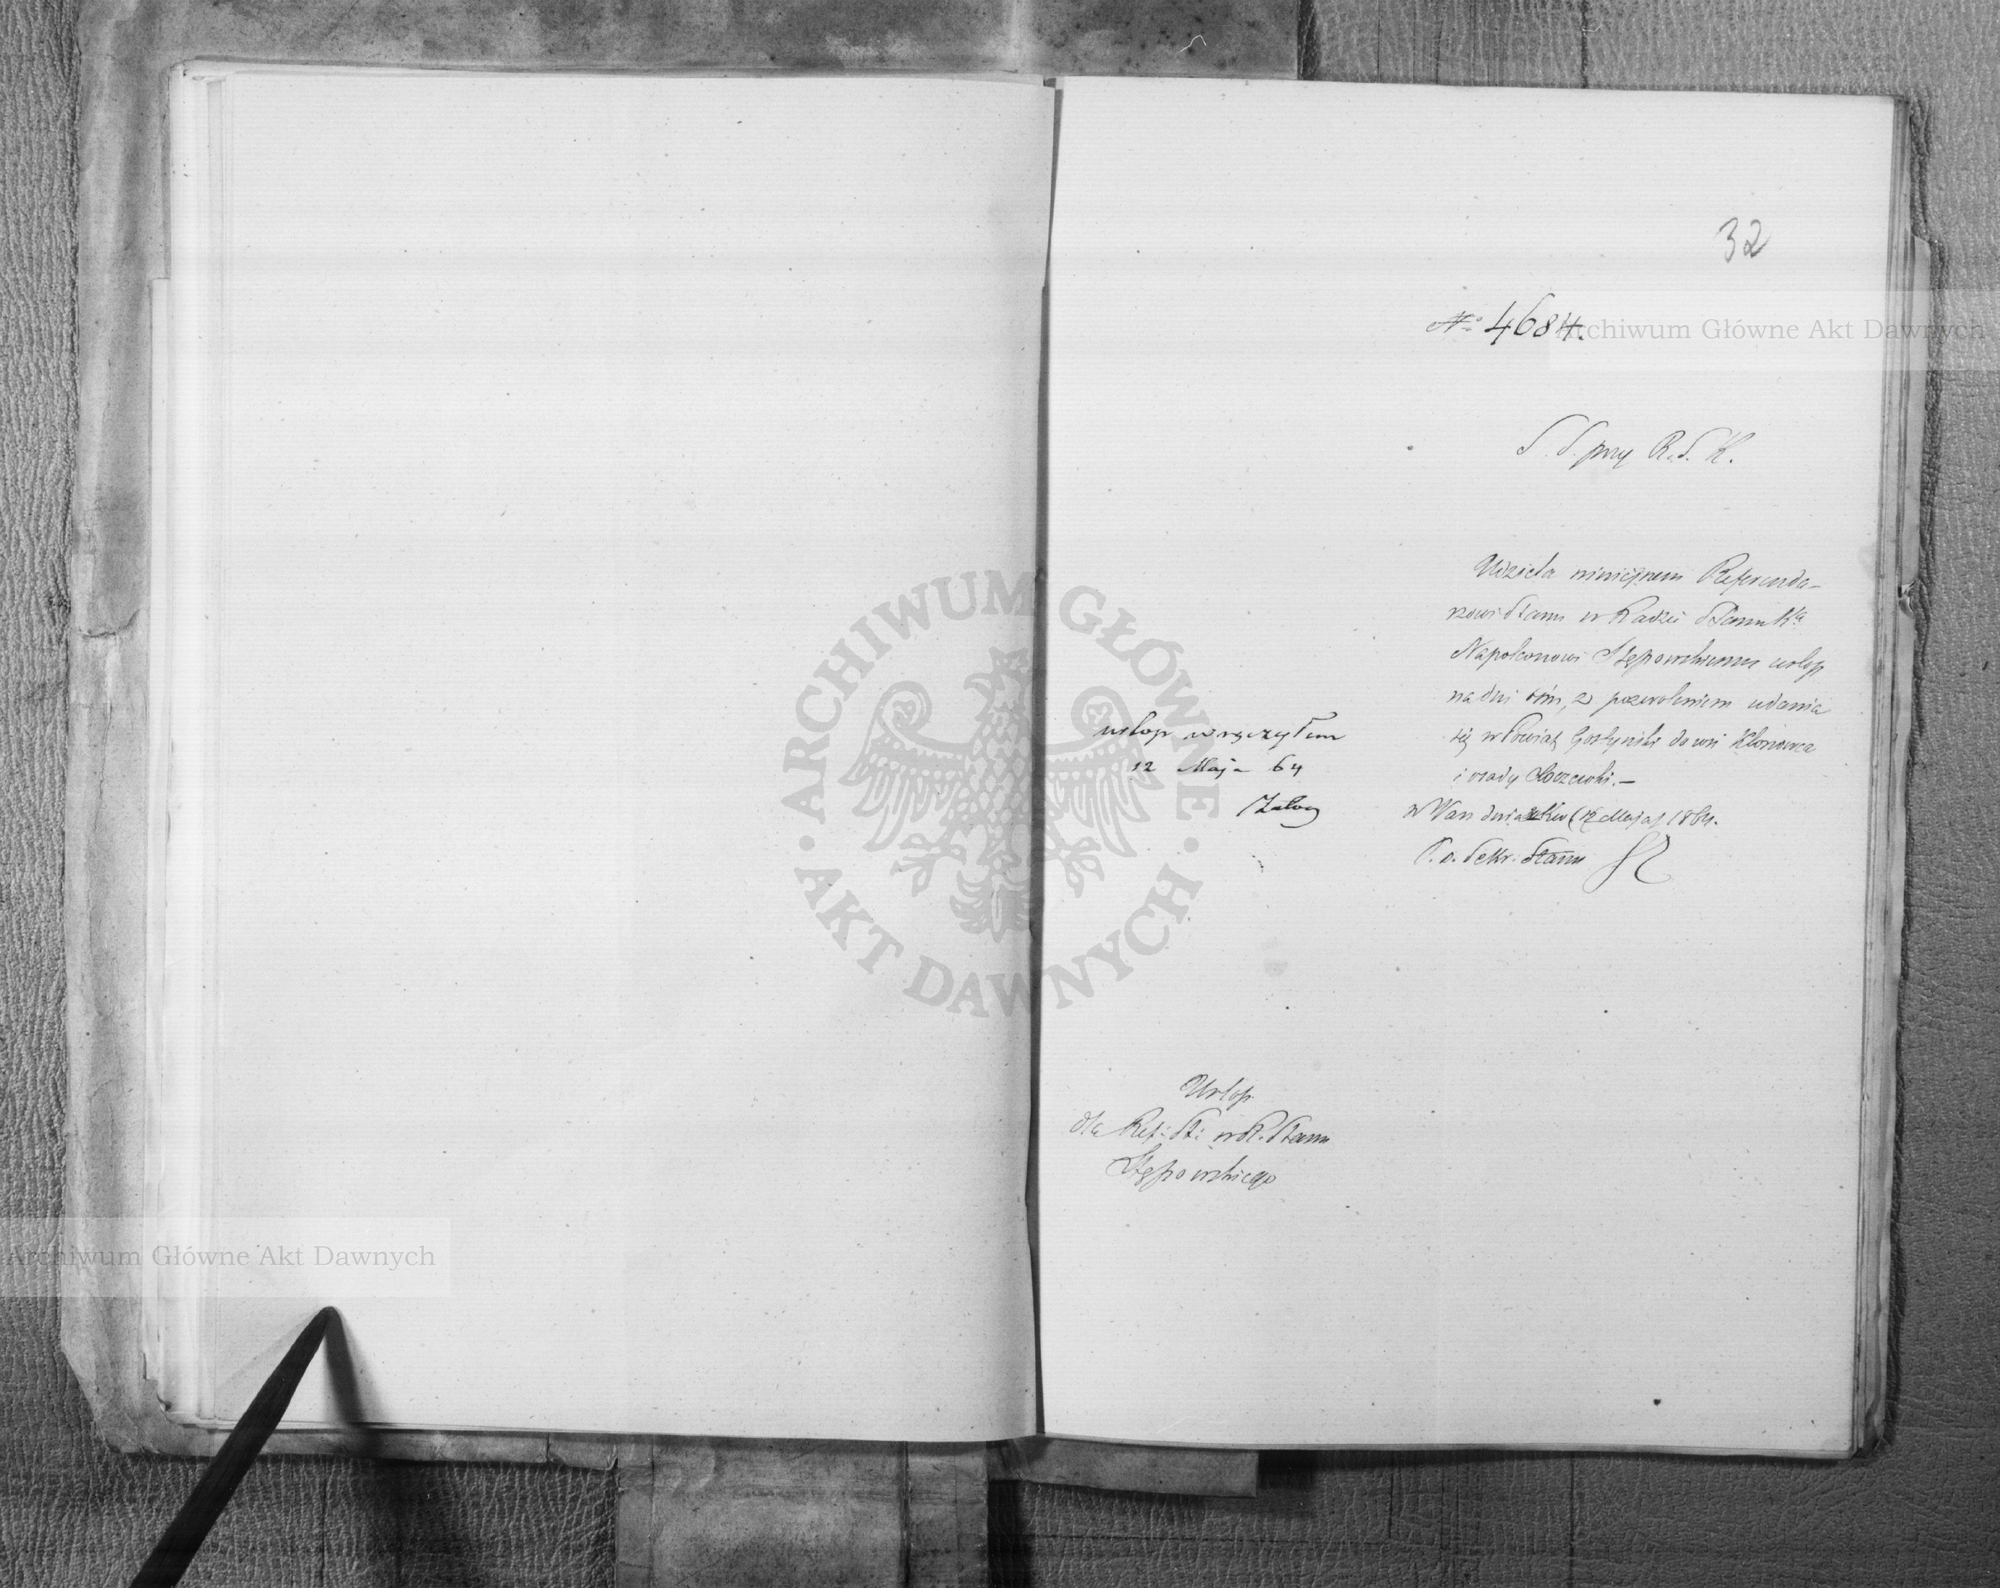 32
№ 4684.
S. S. przy R. S. K.
Udziela niniejszem Referenda-
rzowi Stanu w Radzie Stanu Kr.
Napoleonowi Stępowskiemu urlop
na dni ośm, z pozwoleniem udania
się w Powiat Gostyński do wsi Klonowca
i osady
w War dnia Maja 1864.
P. o. Sekr. Stanu
urlop wręczyłem
12 Maja 64
Urlop
dla Ref: St: w R. Stanu
Stępowskiego
ARCHIWUM GŁÓWNE AKT DAWNYCH
Archiwum Główne Akt Dawnych
Archiwum Główne Akt Dawnych